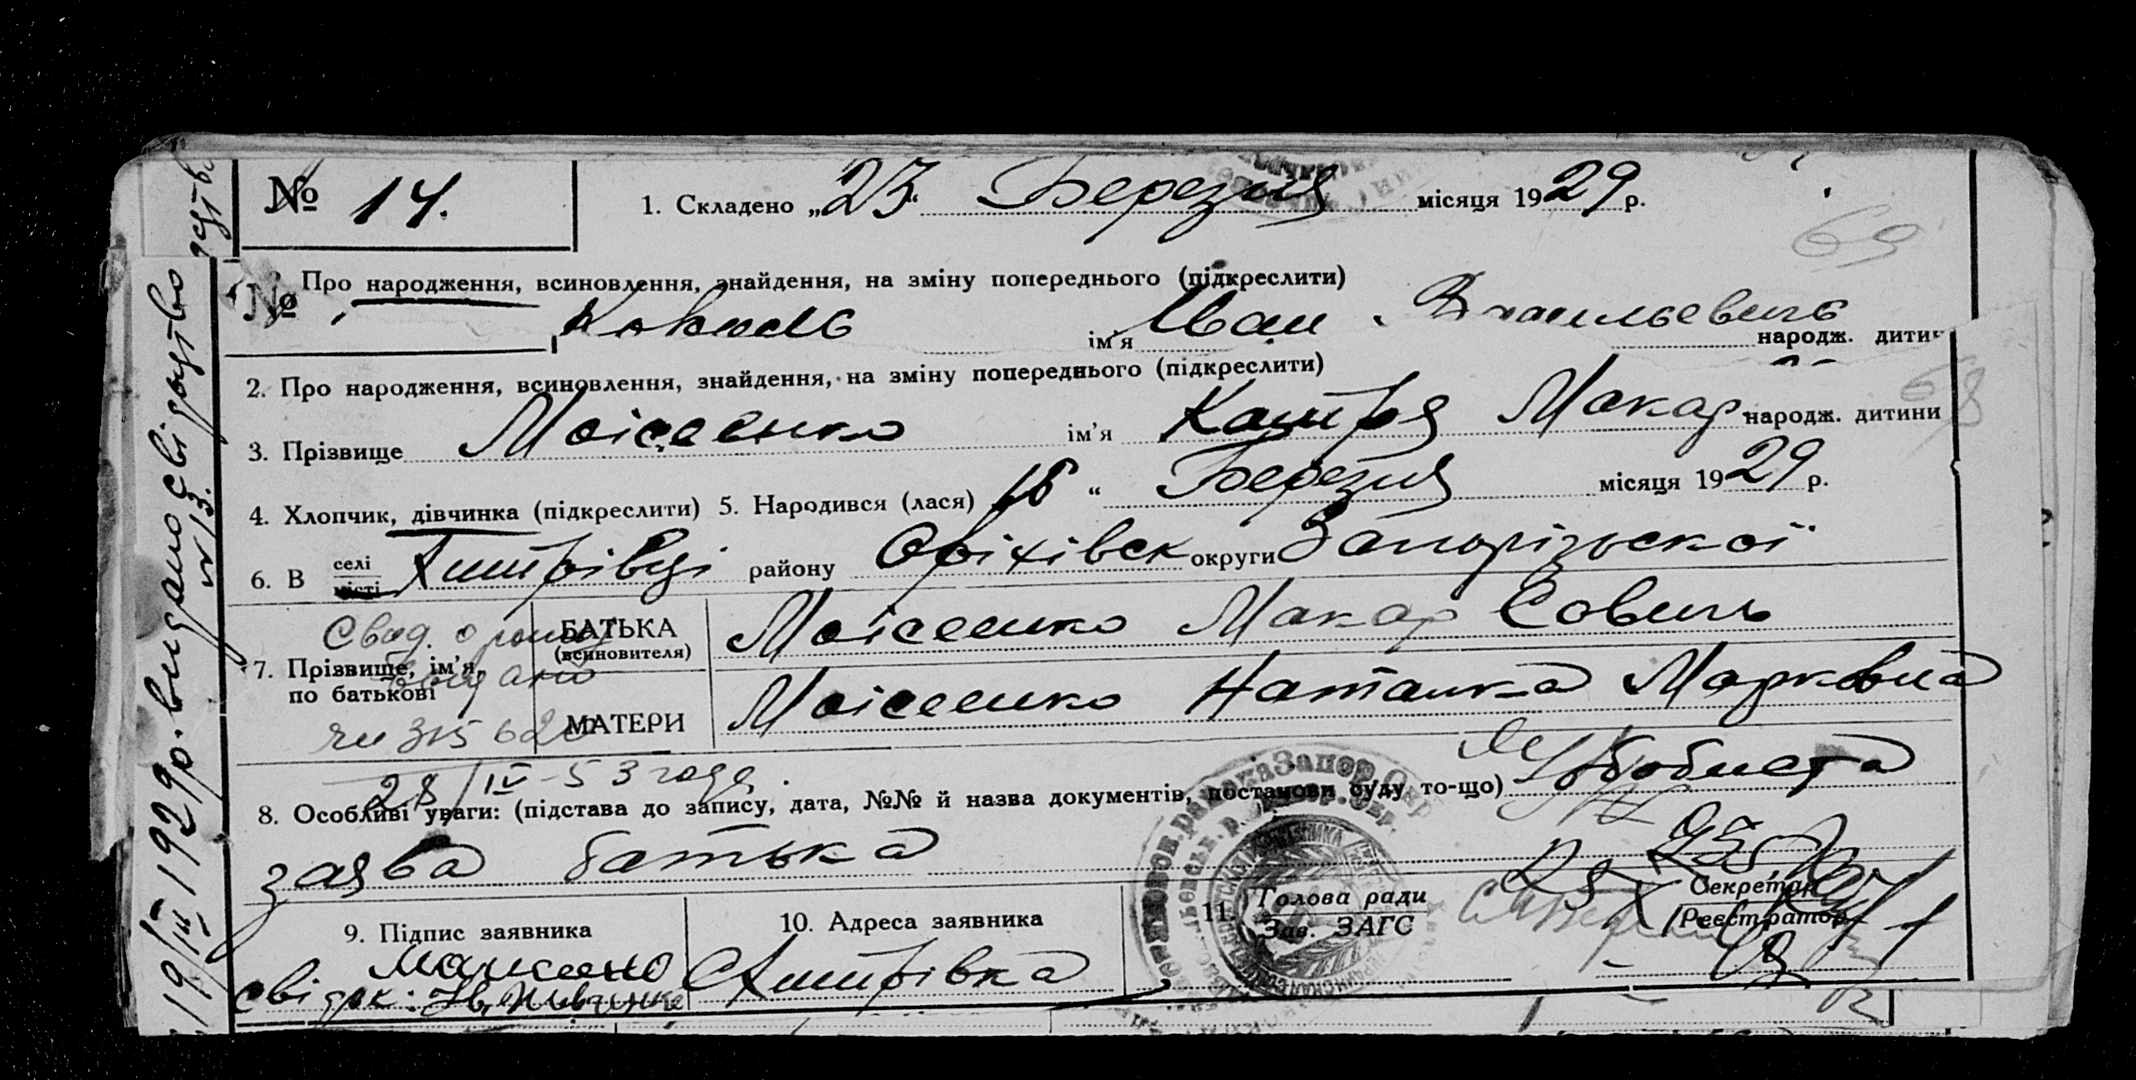 № 14. 1. Складено „23“ Березня місяця 1929 р.
69
Про народження, всиновлення, знайдення, на зміну попереднього (підкреслити)
№ Коваль ім'я Іван Васильевич народж. дитин
2. Про народження, всиновлення, знайдення, на зміну попереднього (підкреслити)
68
3. Прізвище Моісеенко ім'я Катря Макар. народж. дитини
4. Хлопчик, дівчинка (підкреслити) 5. Народився (лася) 18 “ Березня місяця 1929 р.
6. В селі місті Дмитрівці району Оріхівск округи Запорізької
Свид. о рожд.
БАТЬКА (всиновителя) Моісеенко Макар Сович
7. Прізвище, ім'я, по батькові
МАТЕРИ Моісеенко Наталка Марковна
28/IV-53 года.
8. Особливі уваги: (підстава до запису, дата, №№ й назва документів, постанови суду то-що)
заява батька
9. Підпис заявника 10. Адреса заявника 11. Голова ради Зав. ЗАГС Секретар Реєстратор
свідок: Ів. Дмитрівка
19/III 1929р. видано свідоцтво
№ 13.